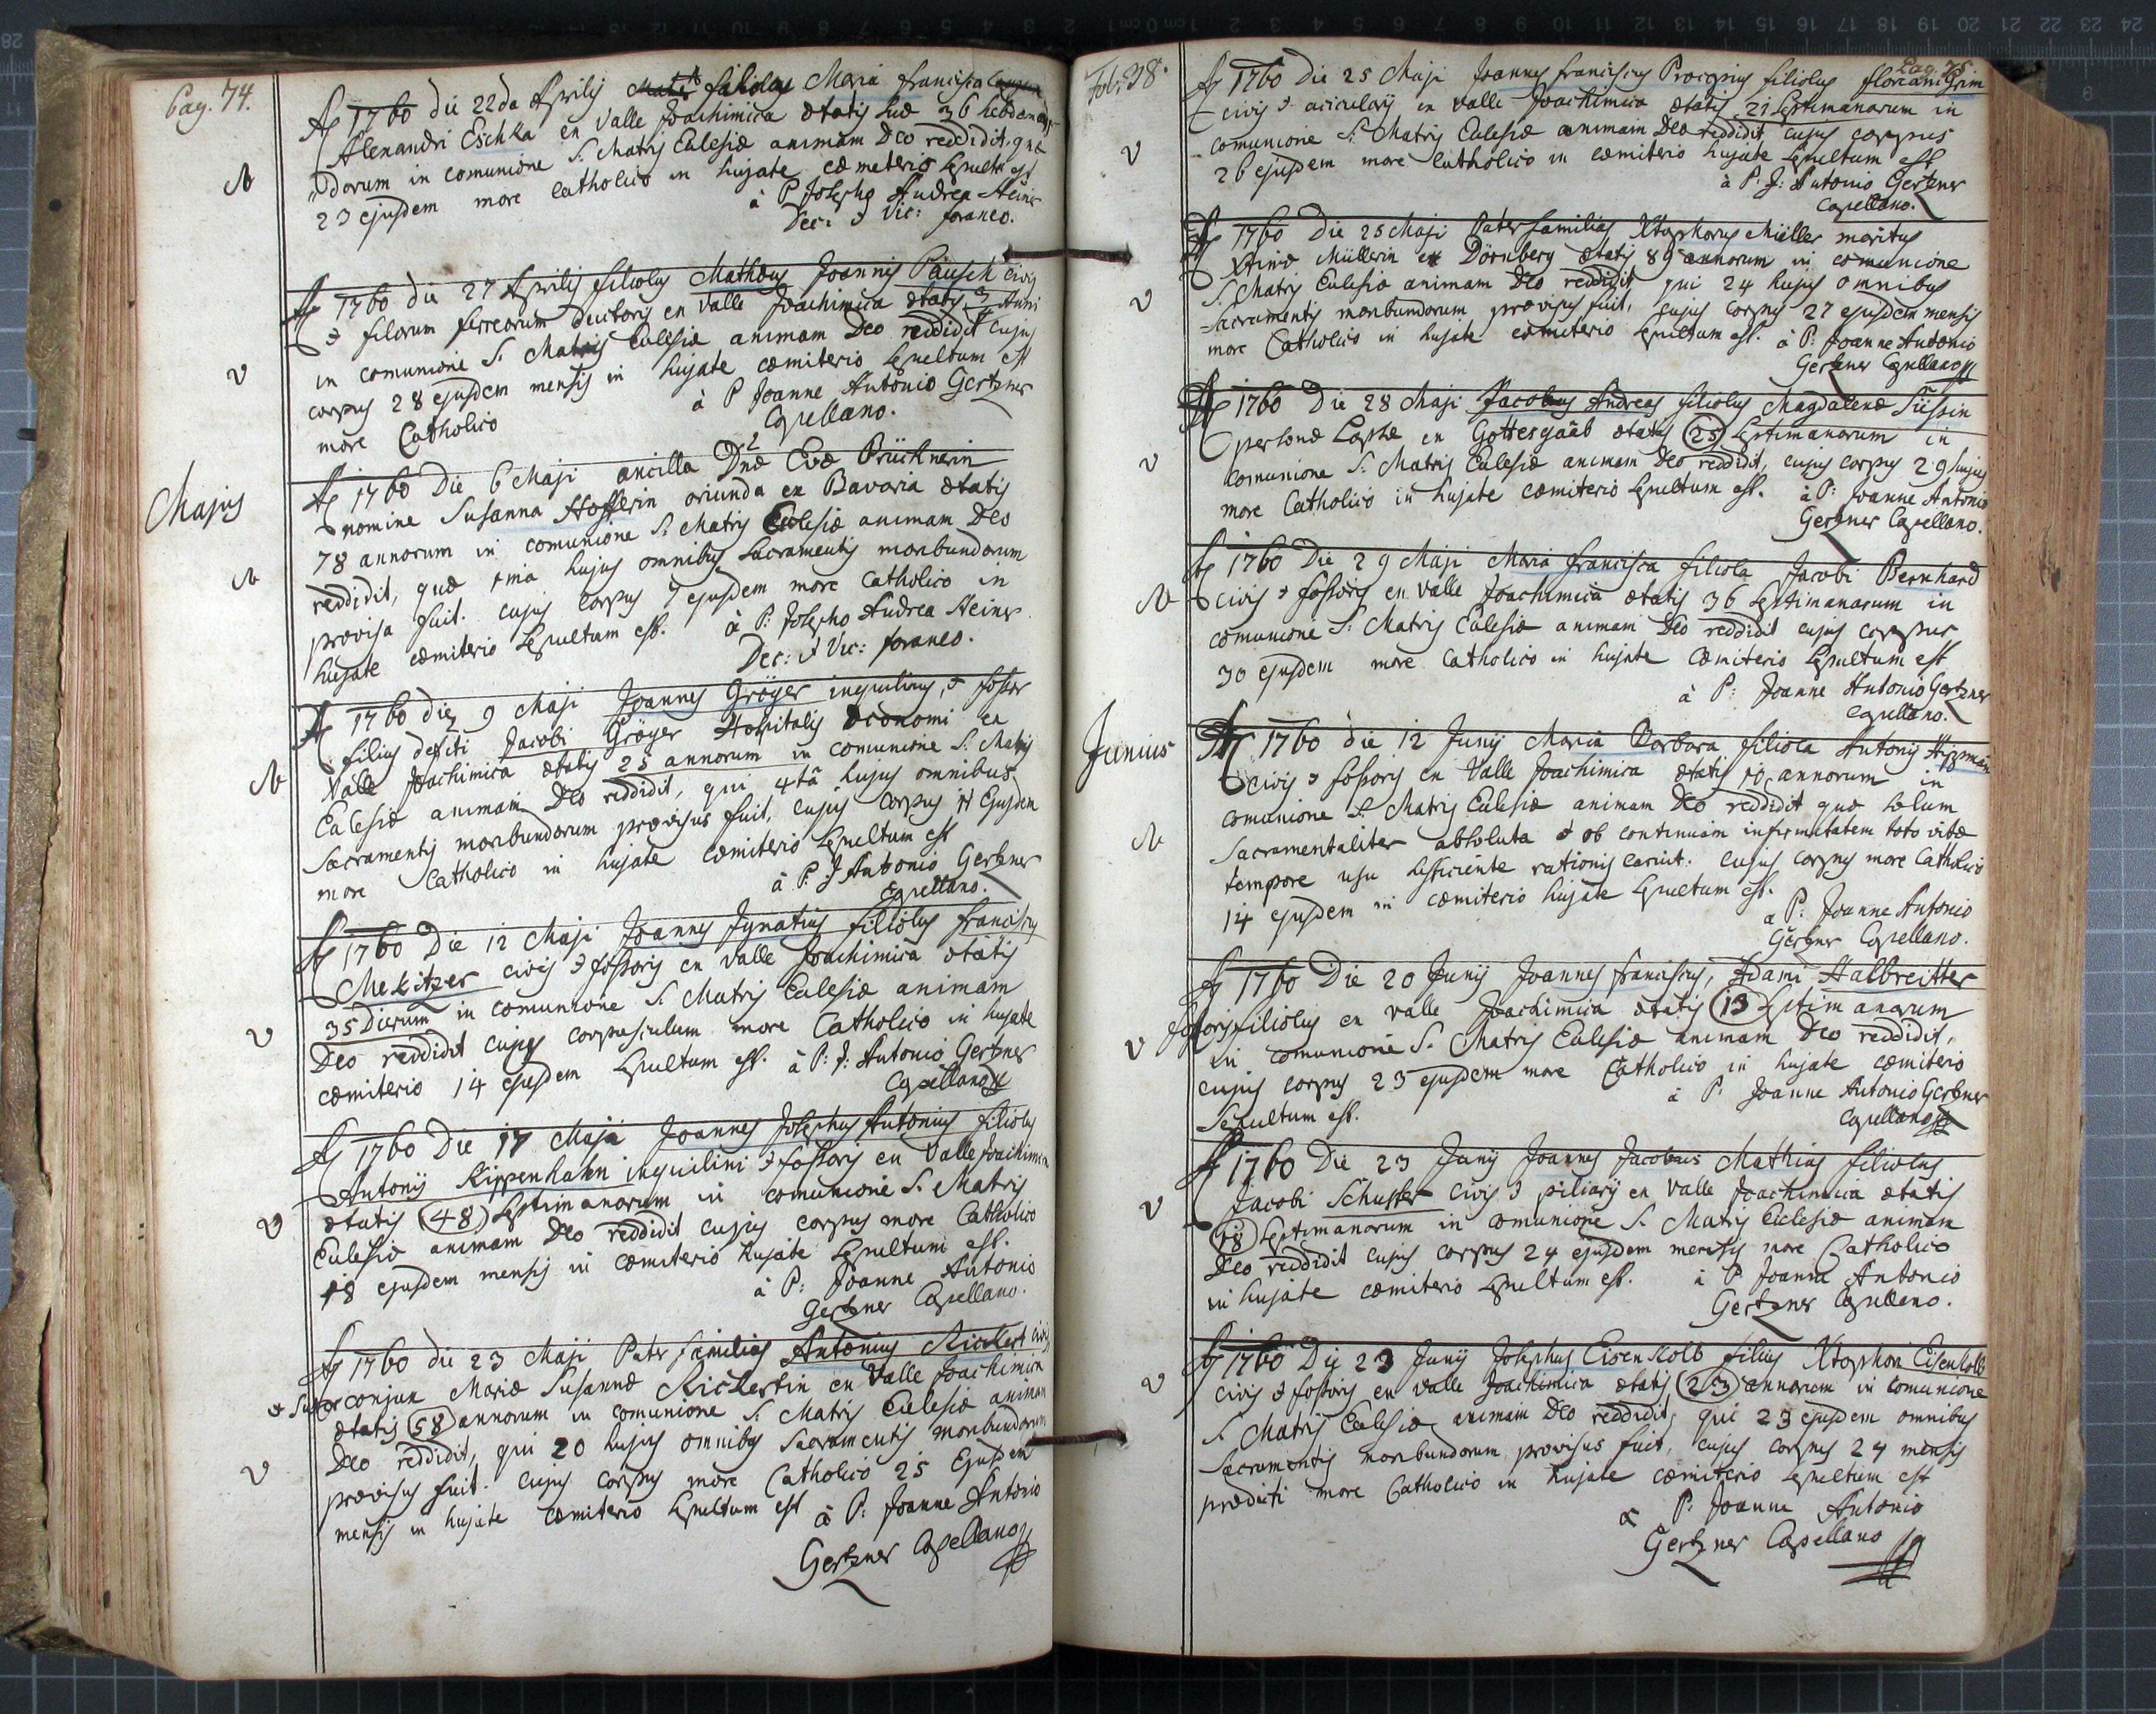 Pag. 74.
Ao 1760 die 22da Aprilis filiola Maria Francisca
Alexandri Eschka ex Valle Joachimica ætatis suæ 36 hebdoma-
darum in comunione S: Matris Eclesiæ animam Deo reddidit, quæ
23 ejusdem more Catholico in hujate cæmeterio sepulta est
à P: Josepho Andrea Heiner
Dec: & Vic: foraneo.
Ao 1760 die 27 Aprilis filiolus Mathæus Joannis Päusch civis
& filorum ferreorum ductoris ex Valle Joachimica ætatis 3 Anni
in comunione S. Matris Eclesiæ animam Deo reddidit cujus
corpus 28 ejusdem mensis in hujate cæmiterio sepultum est
more Catholico à P Joanne Antonio Gertzner
Capellano.
Majus
Ao 1760 Die 6 Maji ancilla Dnæ Evæ Brücknerin
nomine Susanna Hofferin oriunda ex Bavaria ætatis
78 annorum in comunione S: Matris Eclesiæ animam Deo
reddidit, quæ 1ma hujus omnibus sacramentis moribundorum
provisa fuit. cujus corpus 7 ejusdem more Catholico in
hujate cæmiterio sepultum est. à P: Josepho Andrea Heiner
Dec: & Vic: foraneo.
Ao 1760 die 9 Maji Joannes Gröger inquilinus, & fossor
filius defcti Jacobi Gröger Hospitalis Œconomi ex
Valle Joachimica ætatis 25 annorum in comunione S. Matris
Eclesiæ animam Deo reddidit, qui 4tâ hujus omnibus
Sacramentis moribundorum provisus fuit, cujus corpus 11 Ejusdem
more Catholico in hujate cæmiterio sepultum est
à P. J Antonio Gertzner
Capellano.
Ao 1760 Die 12 Maji Joannes Ignatius filiolus Francisci
Mekitzer civis & fossoris ex Valle Joachimica ætatis
35 Dierum in comunione S. Matris Eclesiæ animam
Deo reddidit cujus corpusculum more Catholico in hujate
cæmiterio 14 ejusdem sepultum est. à P: J: Antonio Gertzner
Capellano
Ao 1760 Die 17 Maja Joannes Josephus Antonius filiolus
Antonij Kippenhahn inquilini & fossoris ex Valle Joachimica
ætatis 48 septimanarum in comunione S. Matris
Eclesiæ animam Deo reddidit cujus corpus more Catholico
18 ejusdem mensis in cæmiterio hujate sepultum est.
à P: Joanne Antonio
Gertzner Capellano.
Ao 1760 die 23 Maji Pater familias Antonius Rickert civis
& Sutor conjux Mariæ Susannæ Rickertin ex Valle Joachimica
ætatis 58 annorum in comunione S. Matris Eclesiæ animam
Deo reddidit, qui 20 hujus omnibus Sacramentis moribundorum
provisus fuit. cujus corpus more Catholico 25 Ejusdem
mensis in hujate cæmiterio sepultum est à P: Joanne Antonio
Gertzner Capellano
Fol: 38.
Pag. 75.
Ao 1760 Die 25 Maji Joannes Franciscus Procopius filiolus Floriani Grim
civis & acicularij ex Valle Joachimica ætatis 21 septimanarum in
comunione S: Matris Eclesiæ animam Deo reddidit cujus corpus
26 ejusdem more Catholico in cæmiterio hujate sepultum est
à P: J: Antonio Gertzner
Capellano.
Ao 1760 Die 25 Maji Pater familias Xtophorus Müller maritus
Xtinæ Müllerin ex Dörnberg ætatis 89 annorum in comunione
S. Matris Eclesiæ animam Deo reddidit qui 24 hujus omnibus
Sacramentis moribundorum provisus fuit, cujus corpus 27 ejusdem mensis
more Catholico in hujate cæmiterio sepultum est. à P: Joanne Antonio
Gertzner Capellano
Ao 1760 Die 28 Maji Jacobus Andreas filiolus Magdalenæ Süssin
personæ Lapsæ ex Gottesgaab ætatis 25 septimanarum in
Comunione S: Matris Eclesiæ animam Deo reddidit, cujus corpus 29 hujus
more Catholico in hujate cæmiterio sepultum est. à P: Joanne Antonio
Gertzner Capellano.
Ao 1760 Die 29 Maji Maria Francisca filiola Jacobi Bernhard
civis & fossoris ex Valle Joachimica ætatis 36 septimanarum in
comunione S: Matris Eclesiæ animam Deo reddidit cujus corpus
30 ejusdem more Catholico in hujate cæmiterio sepultum est
à P: Joanne Antonio Gertzner
Capellano.
Junius
Ao 1760 die 12 Junij Maria Barbara filiola Antonij
civis & fossoris ex Valle Joachimica ætatis 10 annorum in
comunione S. Matris Eclesiæ animam Deo reddidit quæ solum
Sacramentaliter absoluta & ob continuam infirmitatem toto vitæ
tempore usu sufficiente rationis caruit. cujus corpus more Catholico
14 ejusdem in cæmiterio hujate sepultum est.
a P: Joanne Antonio
Gertzner Capellano.
Ao 1760 Die 20 Junij Joannes Franciscus, Adami Halbreitter
fossoris filiolus ex valle Joachimica ætatis 13 septimanarum
in comunione S. Matris Eclesiæ animam Deo reddidit,
cujus corpus 23 ejusdem more Catholico in hujate cæmiterio
Sepultum est. à P. Joanne Antonio Gertzner
Capellano
Ao 1760 Die 23 Junij Joannes Jacobus Mathias filiolus
Jacobi Schuster civis & piliarij ex Valle Joachimica ætatis
18 septimanarum in comunione S. Matris Eclesiæ animam
Deo reddidit cujus corpus 24 ejusdem mensis more Catholico
in hujate cæmiterio sepultum est. à P Joanne Antonio
Gertzner Capellano.
Ao 1760 Die 23 Junij Josephus Eisenkolb filius Xtophori Eisenkolb
civis & fossoris ex Valle Joachimica ætatis 23 annorum in comunione
S. Matris Eclesiæ animam Deo reddidit, qui 23 ejusdem omnibus
Sacramentis moribundorum provisus fuit, cujus corpus 24 mensis
prædicti more Catholico in hujate cæmiterio sepultum est
a P: Joanne Antonio
Gertzner Capellano